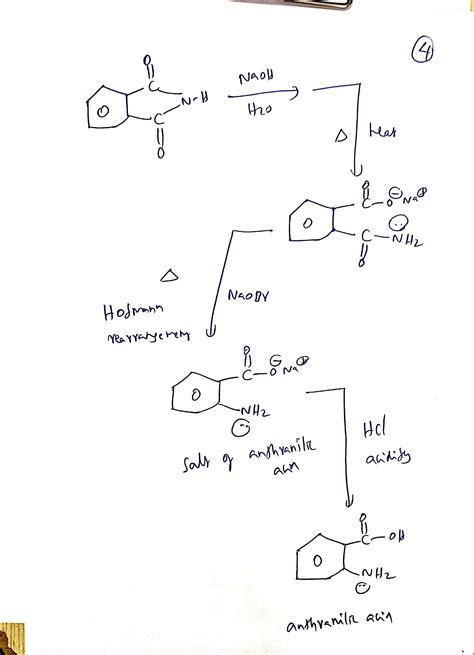 4
O
C
NaOH
N-H
O
H2O
C
O
Δ Heat
O
C-O⊖Na⊕
O
C-NH2
O
Δ
NaOBr
Hofmann
rearrangement
O
C-O⊖Na⊕
O
NH2
HCl
Salt of anthranilic
acid
acidify
O
C-OH
O
NH2
anthranilic acid